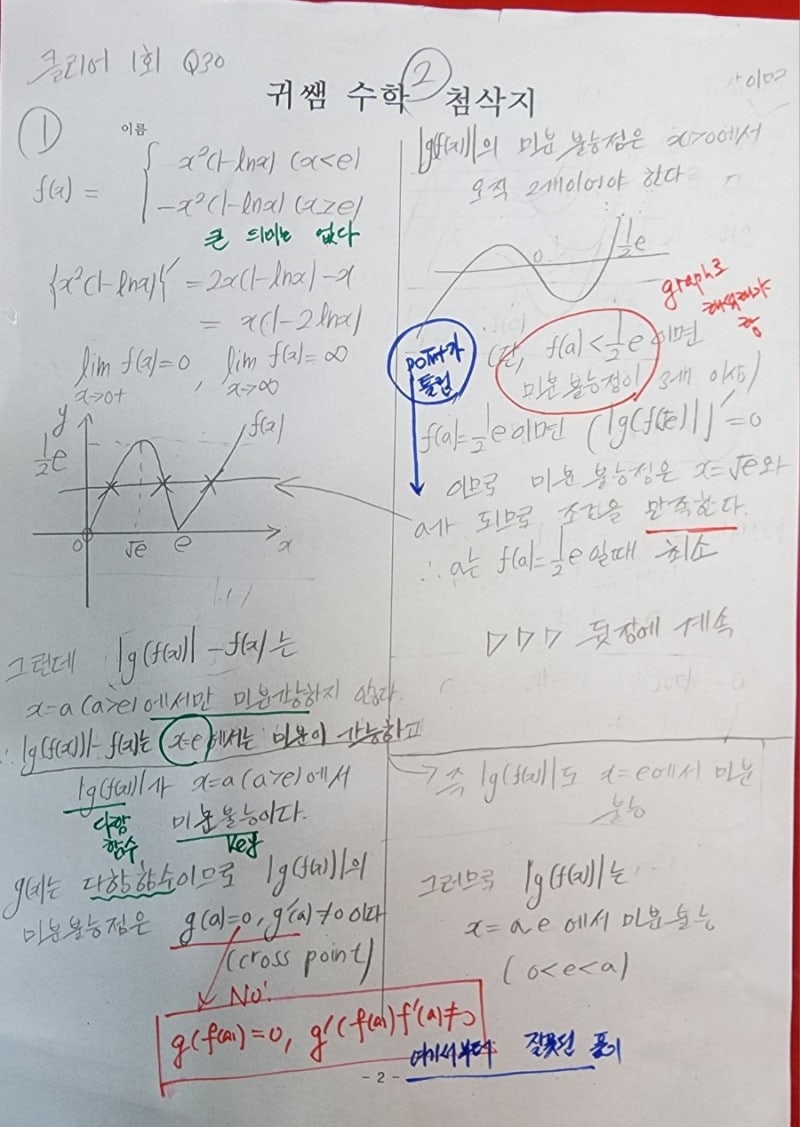 클리어 1회 Q30
귀쌤 수학 첨삭지
①
이름
f(x) = { x²(1-lnx) (x<e)
-x²(1-lnx) (x≥e)
큰 의미는 없다
{x²(1-lnx)}' = 2x(1-lnx)-x
= x(1-2lnx)
lim f(x)=0, lim f(x)=∞
x→0+ x→∞
y
f(x)
1/2 e
0 √e e x
그런데 |g(f(x))| - f(x)는
x=a (a>e)에서만 미분가능하지 않다.
∴ |g(f(x))|-f(x)는 x=e에서는 미분이 가능하고
|g(f(x))|가 x=a (a>e)에서
미분불능이다.
다항
함수
key
g(x)는 다항함수이므로 |g(f(x))|의
미분불능점은 g(a)=0, g'(a)≠0 이다
(cross point)
No!
g(f(a))=0, g'(f(a))f'(a)≠0
②
|g(f(x))|의 미분불능점은 x>0에서
오직 2개이어야 한다
0 1/2 e
graph로
해석해야
함
point가
틀림
(단, f(a)<1/2 e 이면
미분불능점이 3개 이상)
f(a)=1/2 e이면 (|g(f(√e))|)'=0
이므로 미분불능점은 x=√e와
a가 되므로 조건을 만족한다.
∴ a는 f(a)=1/2 e 일때 최소
▷▷▷ 뒷장에 계속
→ 즉 |g(f(x))|도 x=e에서 미분
불능
그러므로 |g(f(x))|는
x=a, e 에서 미분불능
(0<e<a)
여기서부터 잘못된 풀이
- 2 -